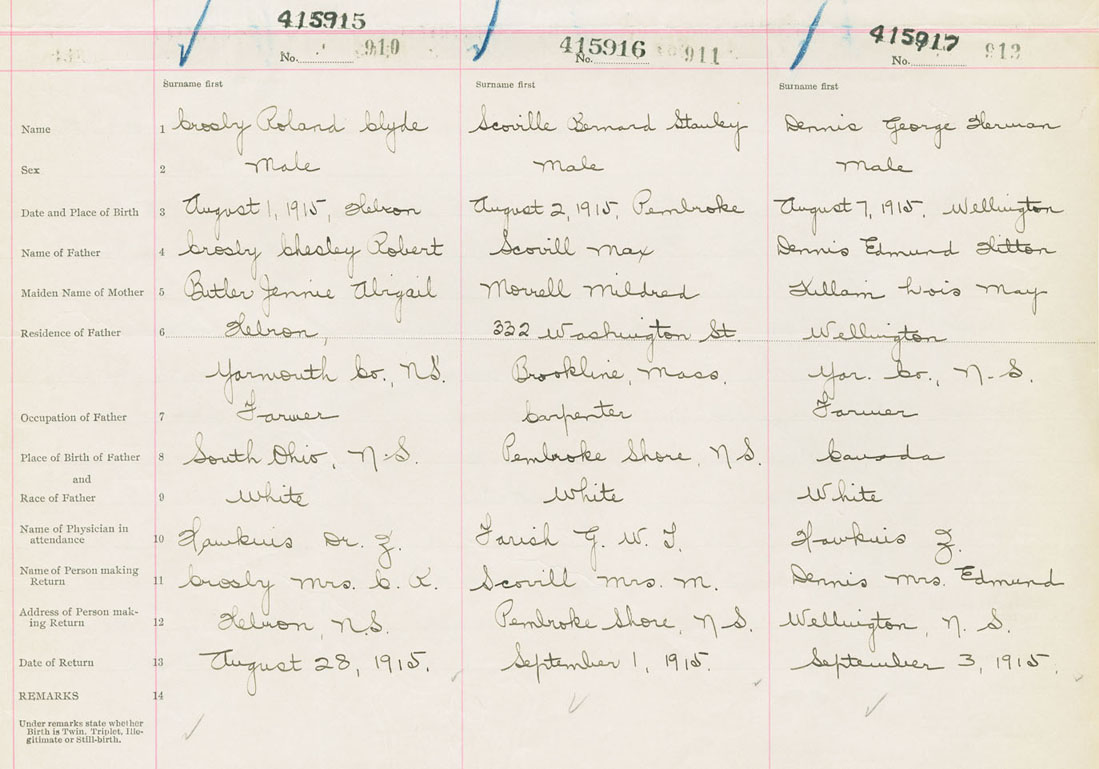 415915 415916 415917
No. 910 No. 911 No. 913
Surname first Surname first Surname first
Name 1 Crosby Roland Clyde Scoville Bernard Stanley Dennis George Herman
Sex 2 Male Male Male
Date and Place of Birth 3 August 1, 1915, Hebron August 2, 1915, Pembroke August 7, 1915, Wellington
Name of Father 4 Crosby Chesley Robert Scovill Max Dennis Edmund Hilton
Maiden Name of Mother 5 Butler Jennie Abigail Morrell Mildred Killam Lois May
Residence of Father 6 Hebron, 332 Washington St. Wellington
Yarmouth Co., N.S. Brookline, Mass. Yar. Co., N.S.
Occupation of Father 7 Farmer Carpenter Farmer
Place of Birth of Father 8 South Ohio, N.S. Pembroke Shore, N.S. Canada
and
Race of Father 9 White White White
Name of Physician in
attendance 10 Hawkins Dr. Z. Farish G. W. T. Hawkins Z.
Name of Person making
Return 11 Crosby Mrs. C. R. Scovill Mrs. M. Dennis Mrs. Edmund
Address of Person mak-
ing Return 12 Hebron, N.S. Pembroke Shore, N.S. Wellington, N.S.
Date of Return 13 August 28, 1915. September 1, 1915. September 3, 1915.
REMARKS 14
Under remarks state whether
Birth is Twin, Triplet, Ille-
gitimate or Still-birth.